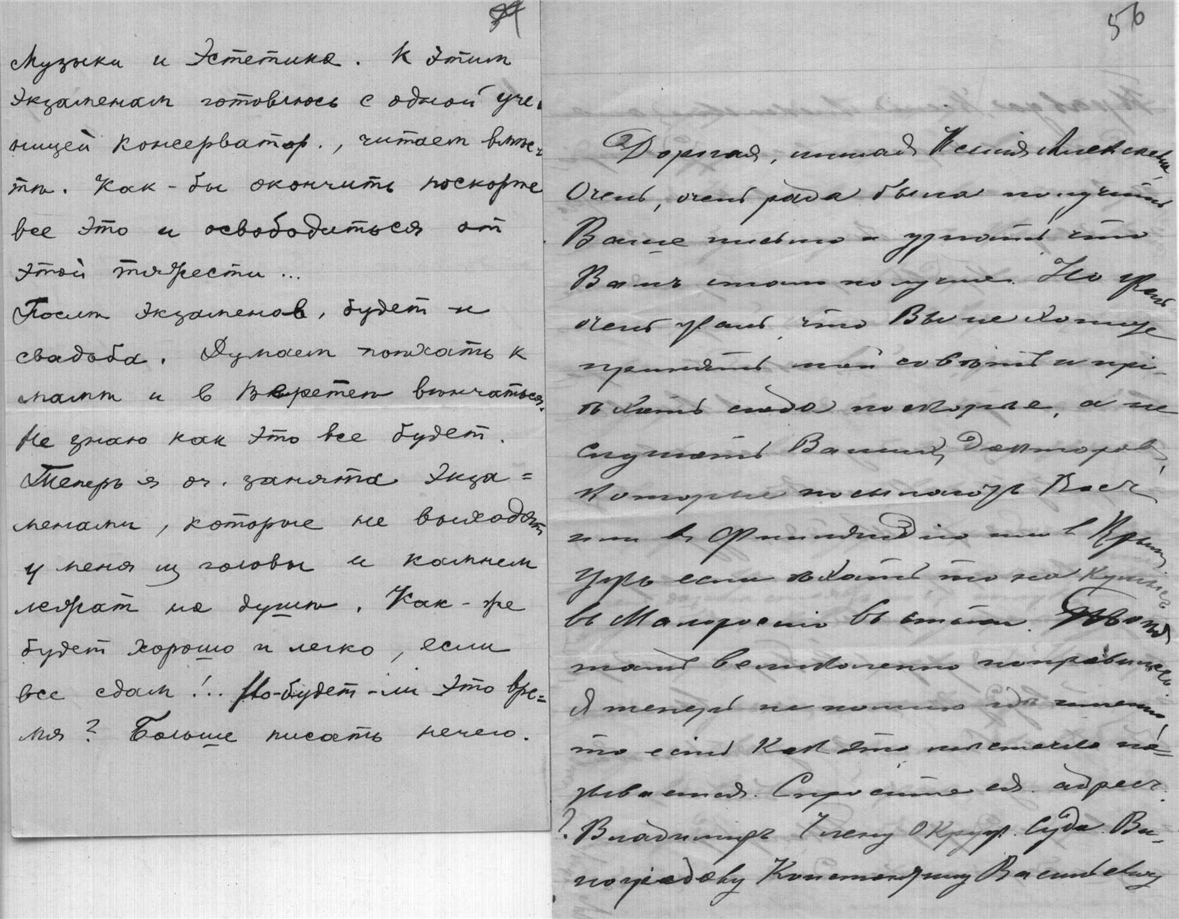 музыки и Эстетика. К этим
экзаменам готовлюсь с одной уче-
ницей консерватор., читаем вмѣс-
тѣ. Как-бы окончить поскорѣе
все это и освободиться от
этой тяжести...
Послѣ экзаменов, будет и
свадьба. Думаем поѣхать к
мамѣ и в Веретеѣ вѣнчаться.
Не знаю как это все будет.
Теперь я оч. занята экза=
менами, которые не выходят
у меня из головы и камнем
лежат на душѣ. Как-же
будет хорошо и легко, если
все сдам!.. Но-будет-ли это вре=
мя? Больше писать нечего.
56
Дорогая, милая Ксенія Алексѣевна,
Очень, очень рада была получить
Ваше письмо и узнать что
Вамъ стало получше. Но жаль
очень жаль, что Вы не хотите
принять мой совѣтъ и прі-
ѣхать сюда поскорѣе, а не
слушать Вашихъ Докторовъ,
которые посылаютъ Васъ
или въ Финляндію или в Крымъ
Ужъ если ѣхать то на Кумысъ
въ Малороссію въ степи.
тамъ великолепно поправилась.
Я теперь не помню гдѣ именно,
то есть Как это мѣстечко на=
зывается. Спросите ея адресъ.
? Владимиръ Члену Окруж. Суда Ви-
ноградову Константину Васильевичу